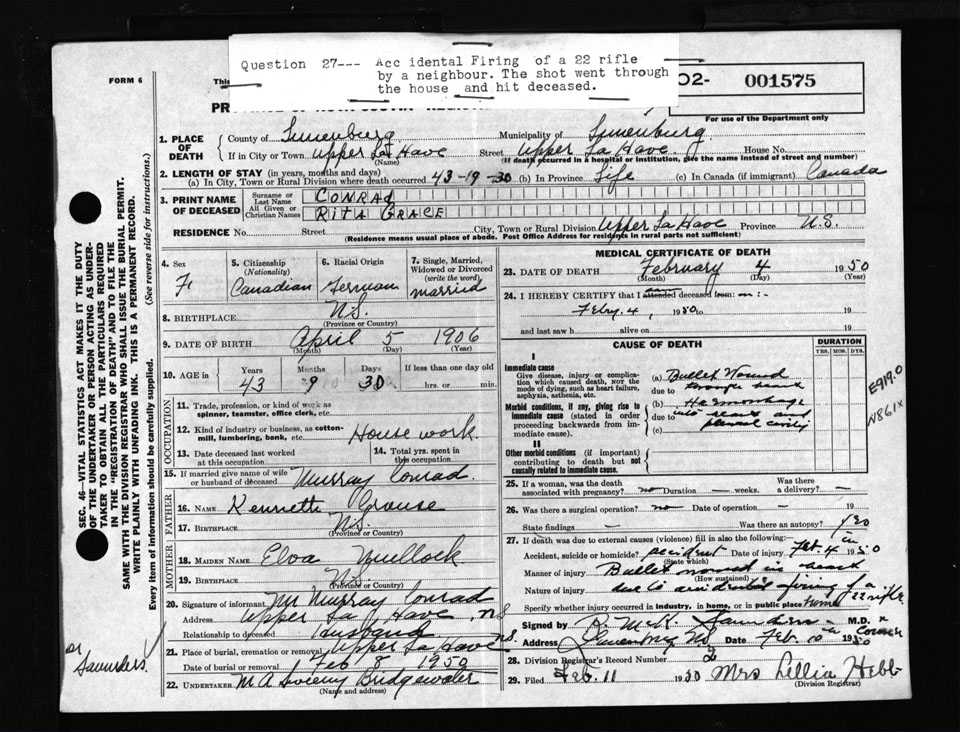 Question 27--- Acc idental Firing of a 22 rifle
by a neighbour. The shot went through
the house and hit deceased.
FORM 6
This
O2- 001575
For use of the Department only
1. PLACE OF DEATH
County of Lunenburg Municipality of Lunenburg
If in City or Town Upper La Have Street Upper La Have. House No.
(Name) (If death occurred in a hospital or institution, give the name instead of street and number)
2. LENGTH OF STAY (in years, months and days)
(a) In City, Town or Rural Division where death occurred 43-19-30 (b) In Province Life (c) In Canada (if immigrant) Canada
3. PRINT NAME OF DECEASED
Surname or Last Name CONRAD
All Given or Christian Names RITA GRACE
RESIDENCE No. Street City, Town or Rural Division Upper La Have Province N.S.
(Residence means usual place of abode. Post Office Address for residents in rural parts not sufficient)
4. Sex F
5. Citizenship (Nationality) Canadian
6. Racial Origin German
7. Single, Married, Widowed or Divorced (write the word) married
8. BIRTHPLACE N.S.
(Province or Country)
9. DATE OF BIRTH April 5 1906
(Month) (Day) (Year)
10. AGE in Years Months Days If less than one day old
43 9 30 hrs. or min.
OCCUPATION
11. Trade, profession, or kind of work as spinner, teamster, office clerk, etc.
12. Kind of industry or business, as cotton-mill, lumbering, bank, etc. House work.
13. Date deceased last worked at this occupation
14. Total yrs. spent in this occupation
15. If married give name of wife or husband of deceased Murray Conrad
FATHER
16. Name Kenneth Grouse
17. Birthplace N.S.
(Province or Country)
MOTHER
18. MAIDEN NAME Elva Mullock
19. Birthplace N.S.
(Province or Country)
20. Signature of informant Mr Murray Conrad
Address Upper La Have, NS
Relationship to deceased Husband
21. Place of burial, cremation or removal Upper La Have N.S.
Date of burial or removal Feb 8 1950
22. UNDERTAKER M A Bridgewater
(Name and address)
MEDICAL CERTIFICATE OF DEATH
23. DATE OF DEATH February 4 1950
(Month) (Day) (Year)
24. I HEREBY CERTIFY that I saw attended deceased from: on :-
Febry. 4, 1950 to 19
and last saw h alive on 19
CAUSE OF DEATH
DURATION
YRS. MOS. DYS.
I
Immediate cause
Give disease, injury or complication which caused death, NOT the mode of dying, such as heart failure, asphyxia, asthenia, etc.
(a) Bullet Wound
due to through heart
Morbid conditions, if any, giving rise to immediate cause (stated in order proceeding backwards from immediate cause).
(b) Haemorrhage
due to into and
(c) pleural cavity
II
Other morbid conditions (if important) contributing to death but not causally related to immediate cause.
E919.0
N861X
25. If a woman, was the death associated with pregnancy? no Duration — weeks. Was there a delivery? —
26. Was there a surgical operation? no Date of operation — 19
State findings — Was there an autopsy? yes
27. If death was due to external causes (violence) fill in also the following:—
Accident, suicide or homicide? accident Date of injury Feb. 4 1950
(State which)
Manner of injury Bullet wound in heart
(How sustained)
Nature of injury due to accidental firing of a 22 rifle
Specify whether injury occurred in industry, in home, or in public place Home
Signed by Saunders M.D. x Coroner
Address Lunenburg N.S. Date Feb. 10th 1950
28. Division Registrar's Record Number 2
29. Filed Feb. 11 1950 Mrs Lellia Hebb
(Division Registrar)
SEC. 46—VITAL STATISTICS ACT MAKES IT THE DUTY
OF THE UNDERTAKER OR PERSON ACTING AS UNDERTAKER TO OBTAIN ALL THE PARTICULARS REQUIRED
IN THE "REGISTRATION OF DEATH" AND TO FILE THE
SAME WITH THE DIVISION REGISTRAR WHO SHALL ISSUE THE BURIAL PERMIT.
WRITE PLAINLY WITH UNFADING INK. THIS IS A PERMANENT RECORD.
Every item of information should be carefully supplied. (See reverse side for instructions.)
Saunders